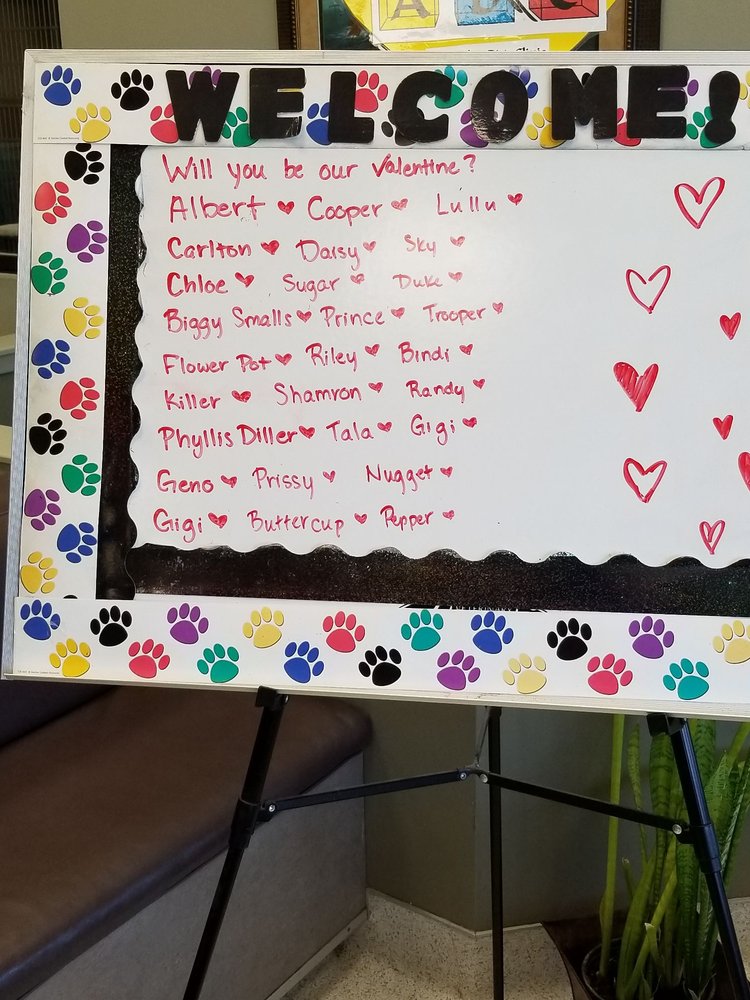 A B C
WELCOME!
Will you be our Valentine?
Albert ♥ Cooper ♥ Lullu ♥
Carlton ♥ Daisy ♥ Sky ♥
Chloe ♥ Sugar ♥ Duke ♥
Biggy Smalls ♥ Prince ♥ Trooper ♥
Flower Pot ♥ Riley ♥ Bindi ♥
Killer ♥ Shamron ♥ Randy ♥
Phyllis Diller ♥ Tala ♥ Gigi ♥
Geno ♥ Prissy ♥ Nugget ♥
Gigi ♥ Buttercup ♥ Pepper ♥